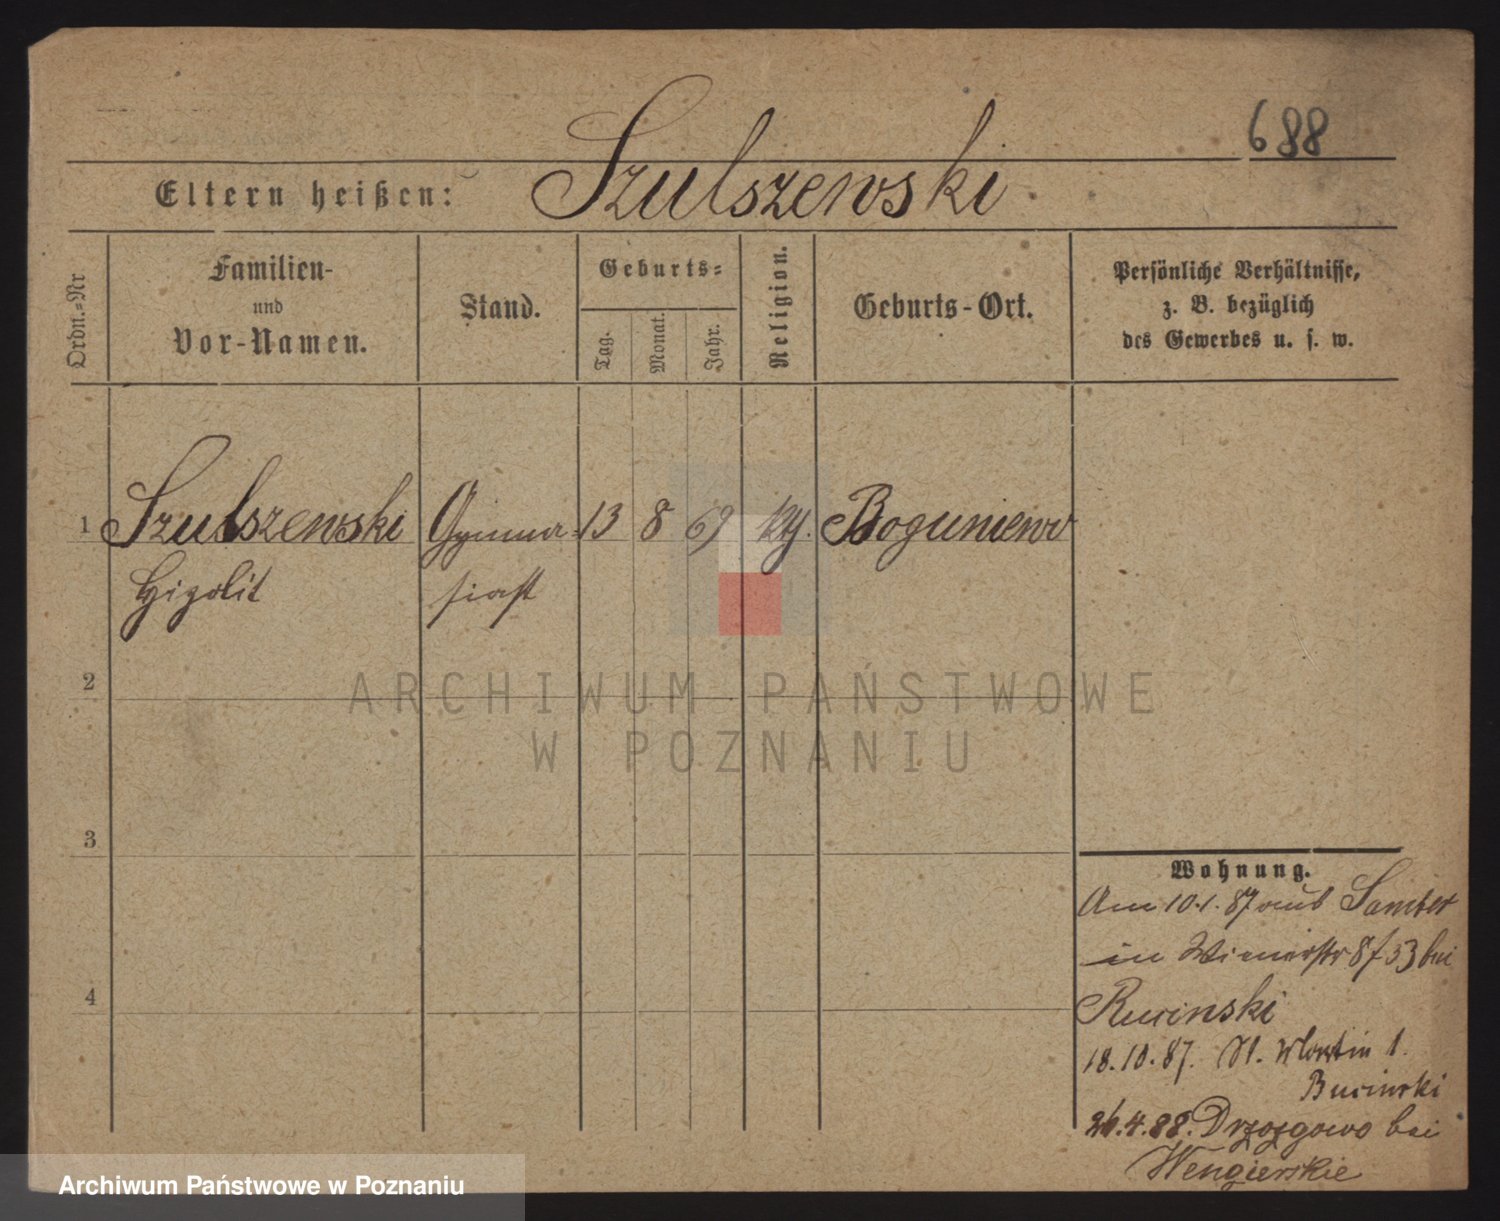 688
Eltern heißen: Szulszewski
Ordn.-Nr
Familien-
und
Vor-Namen.
Stand.
Geburts-
Tag.
Monat.
Jahr.
Religion.
Geburts-Ort.
Persönliche Verhältnisse,
z. B. bezüglich
des Gewerbes u. s. w.
1 Szulszewski Gymna- 13 8 69 Boguniewo
Hipolit siast
2
ARCHIWUM PAŃSTWOWE
W POZNANIU
3
4
Wohnung.
Am 10.1.87 aus Samter
in Wienerstr 8 bei
Rucinski
18.10.87. St. Martin 1.
Rucinski
26.4.88. Drzązgowo bei
Wengierskie
Archiwum Państwowe w Poznaniu